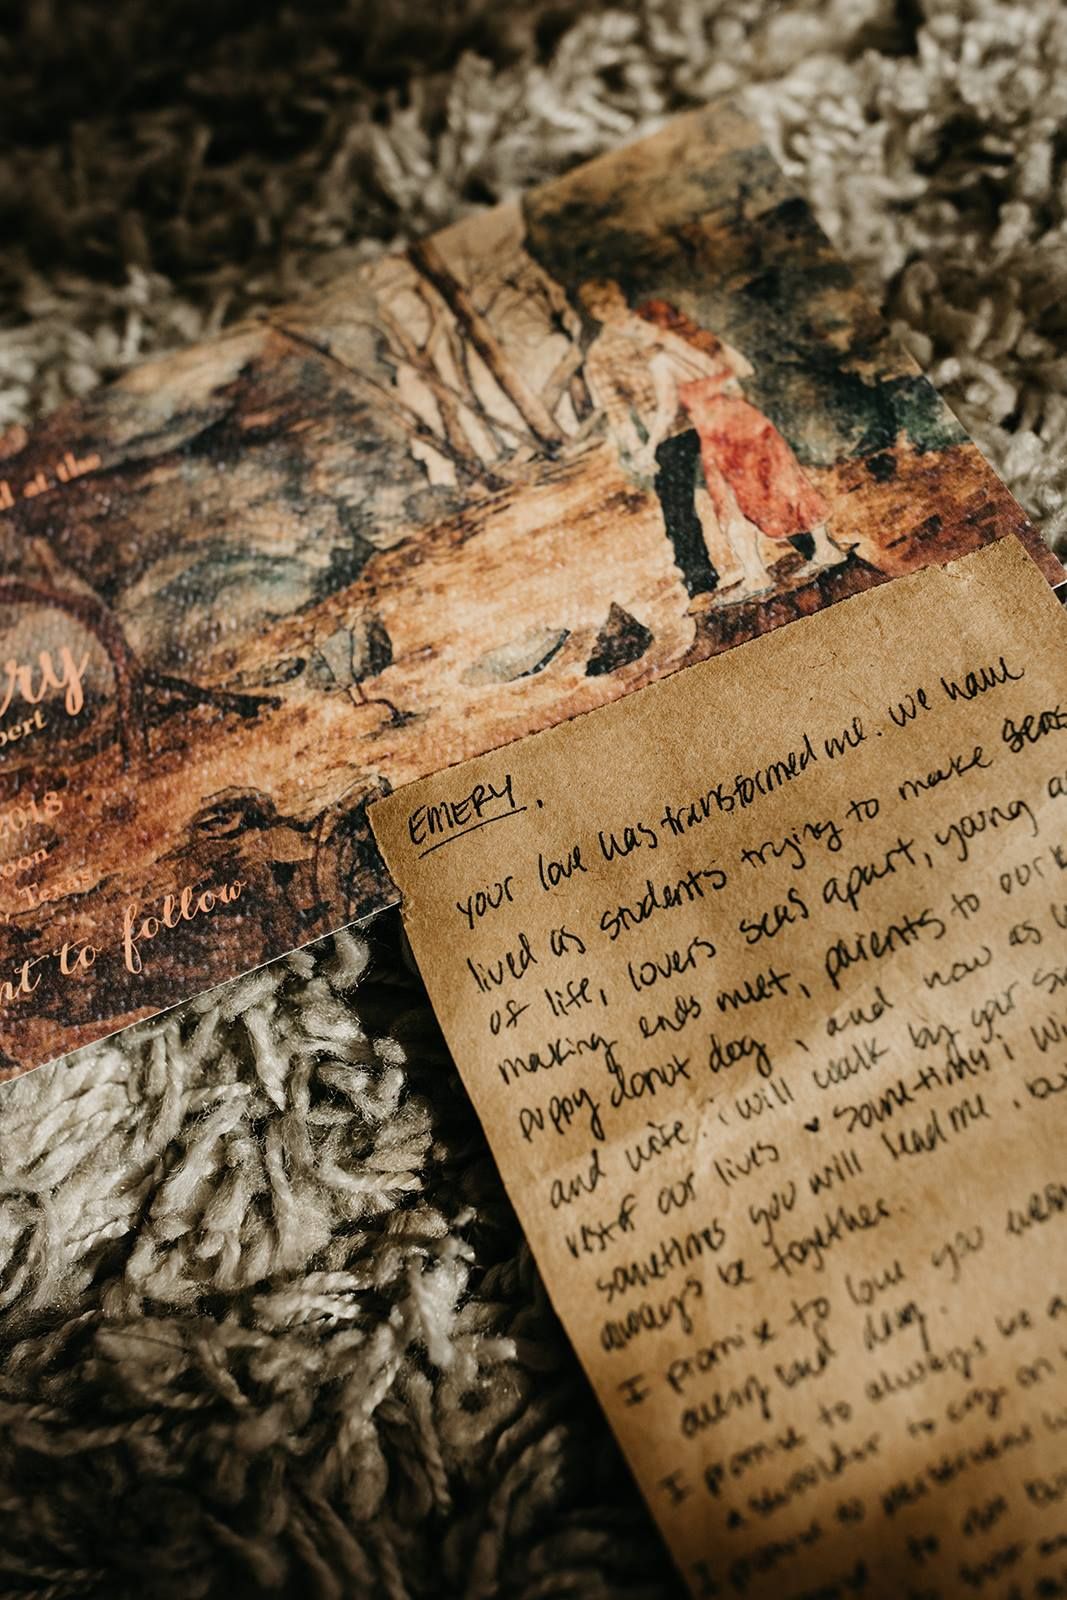 d at the
ry
bert
2018
oon
, Texas
nt to follow
EMERY,
your love has transformed me. we have
lived as students trying to make sens
of life, lovers seas apart, young a
making ends meet, parents to our
puppy donut dog, and now as
and wife. i will walk by your si
rest of our lives ♥ sometimes i wi
sometimes you will lead me. bu
always be together.
I promise to love you
every and day.
I promise to always be a
a shoulder to cry on
I promise to